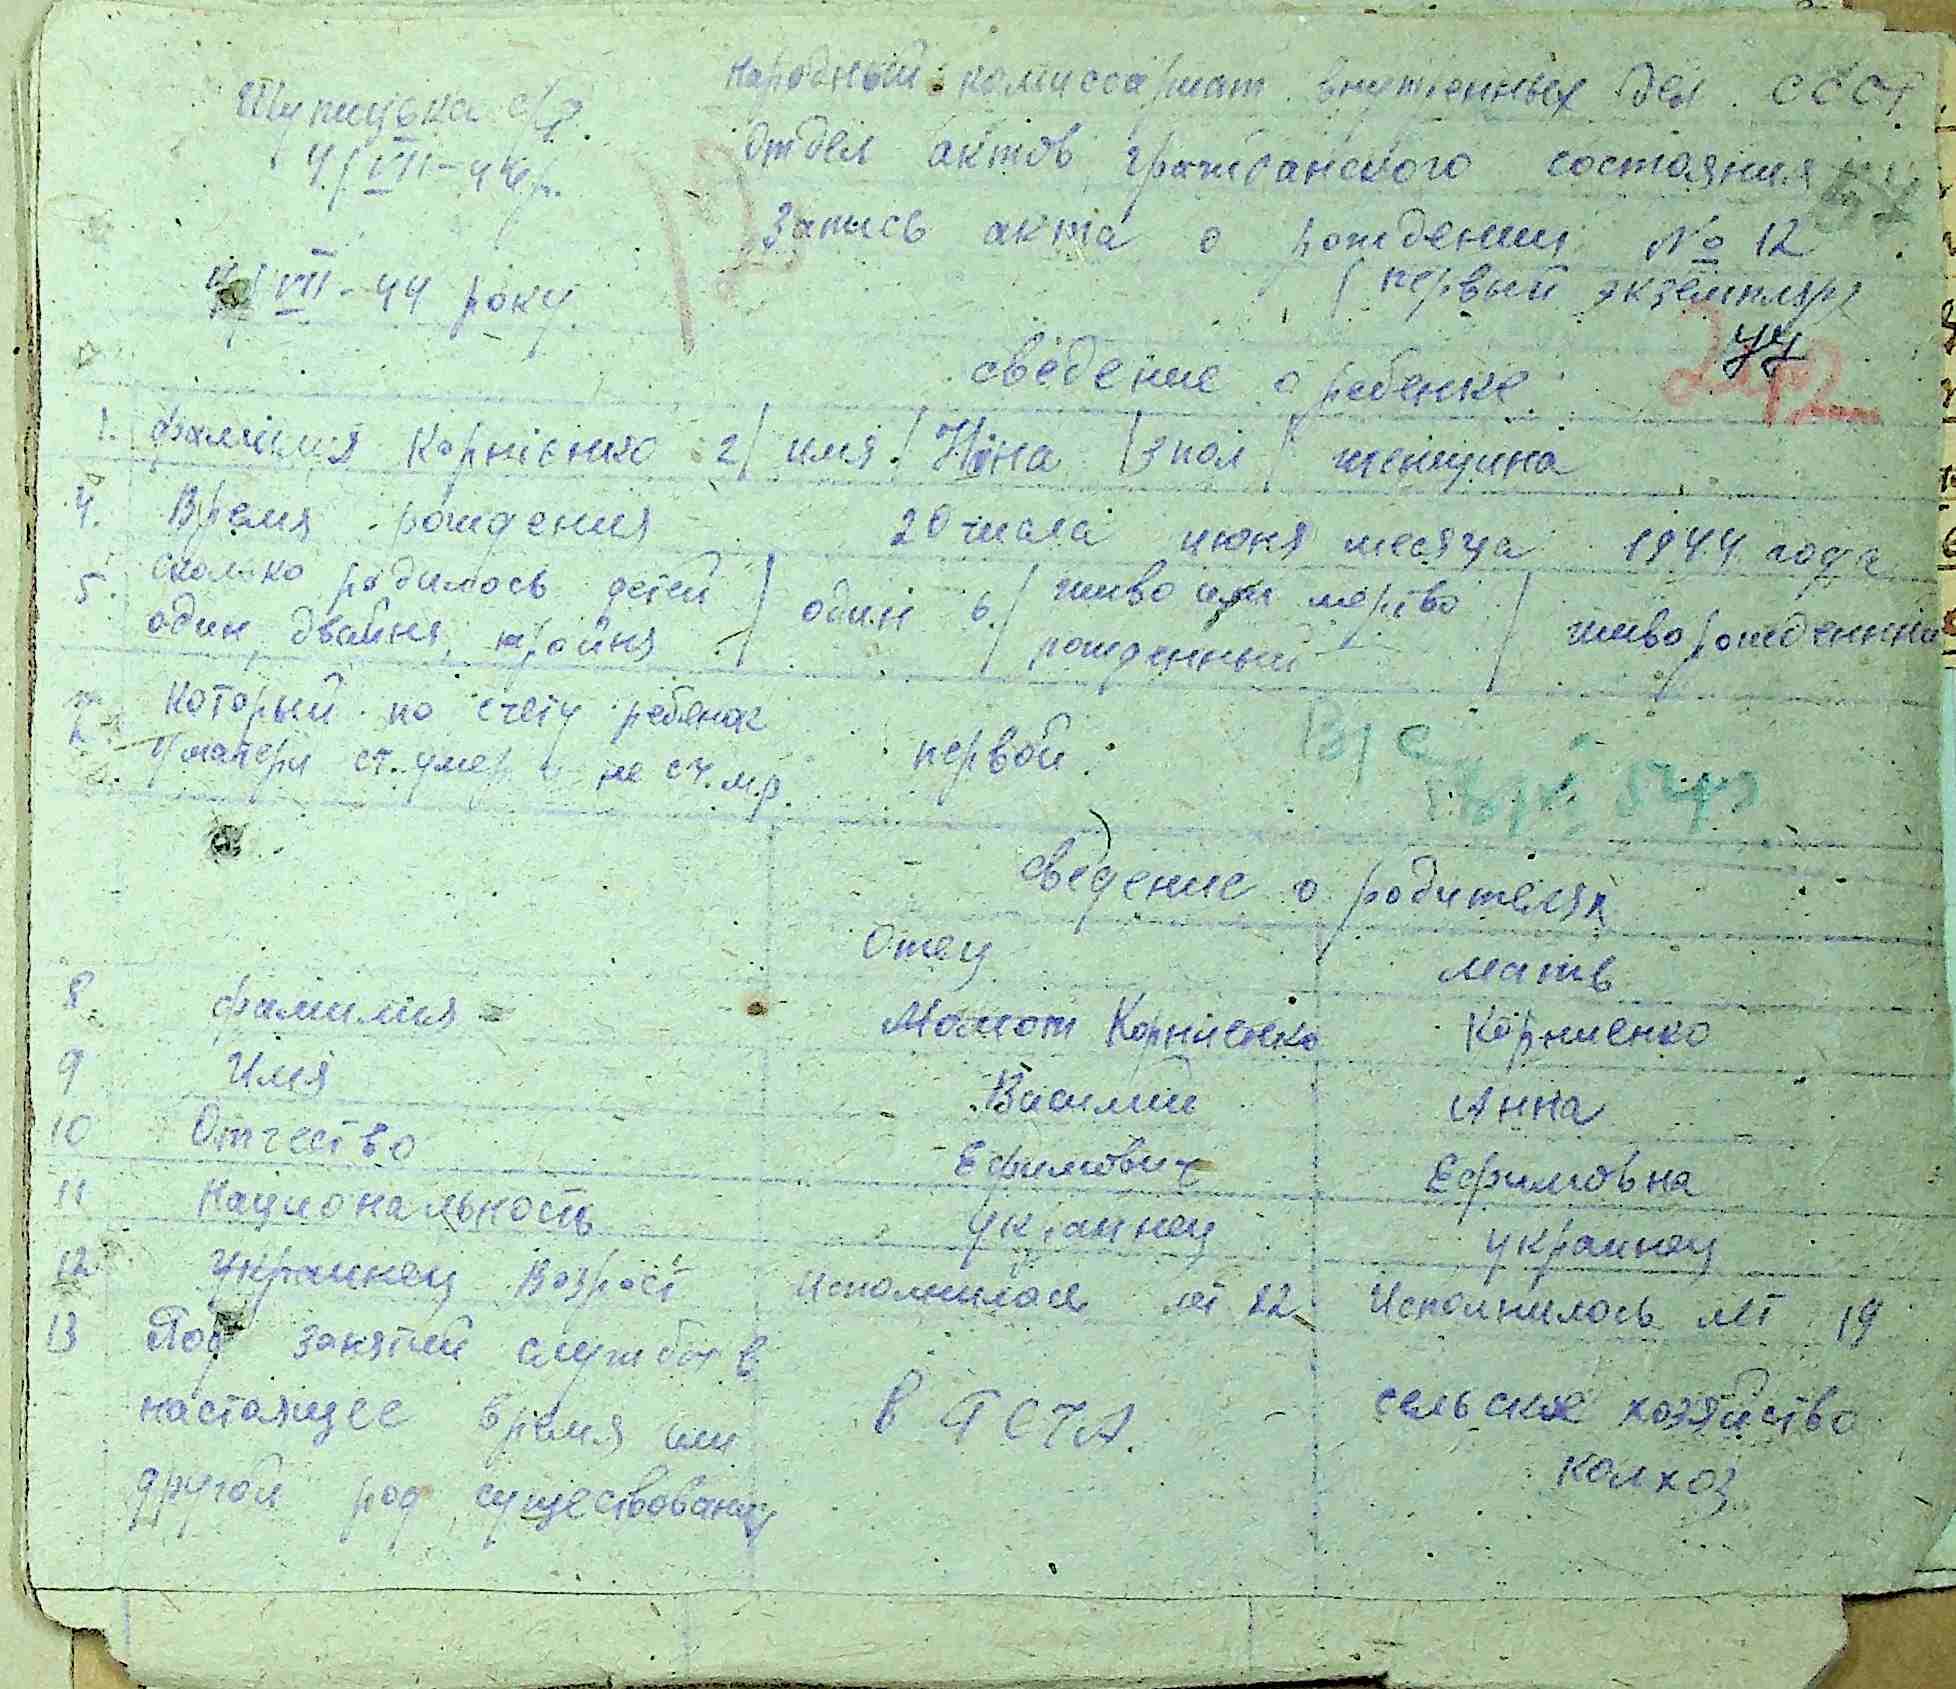 народный комиссариат внутренных дел СССР
отдел актов гражданского состояния
4/VIII-44р.
Запись акта о рождении № 12
/ первый экземпляр
4/VIII-44 року
12
44
сведение о ребенке
1. фамилия Корнієнко 2/ имя / Ніна / 3 пол / женщина
4. Время рождения 20 числа июня месяца 1944 года
5. Сколько родилось детей один, двайня, тройня / один 6. / живо или мертво рожденный / живорожденни
Который по счету ребенок
у матери ст. умер и не сч. м.р. первой.
В/с
сведение о родителях
Отец мать
8. фамилия Момот Корниенко Корниенко
9 Имя Василий Анна
10 Отчество Ефимович Ефимовна
11 Национальность украинец украинец
12 Украинец Возрост Исполнилось лет 22 Исполнилось лет 19
13 Род занятий службы в
настоящее время или в сельское хозяйство
другой род существования колхоз